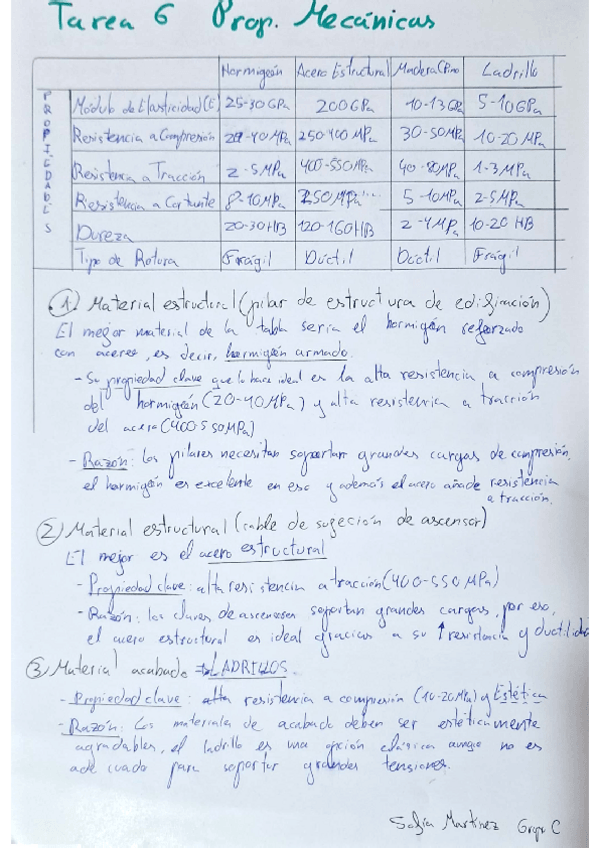 Tarea 6 Prop. Mecánicas
Hormigón Acero Estructural Madera (Pino Ladrillo
PROPIEDADES
Módulo de Elasticidad (E) 25-30 GPa 200 GPa 10-13 GPa 5-10 GPa
Resistencia a Compresión 20-40 MPa 250-400 MPa 30-50 MPa 10-20 MPa
Resistencia a Tracción 2-5 MPa 400-550 MPa 40-80 MPa 1-3 MPa
Resistencia a Cortante 8-10 MPa 250 MPa 5-10 MPa 2-5 MPa
Dureza 20-30 HB 120-160 HB 2-4 MPa 10-20 HB
Tipo de Rotura Frágil Dúctil Dúctil Frágil
1) Material estructural (pilar de estructura de edificación)
El mejor material de la tabla sería el hormigón reforzado
con aceros, es decir, hormigón armado.
- Su propiedad clave que lo hace ideal es la alta resistencia a compresión
del hormigón (20-40 MPa) y alta resistencia a tracción
del acero (400-550 MPa)
- Razón: los pilares necesitan soportar grandes cargas de compresión,
el hormigón es excelente en eso y además el acero añade resistencia
a tracción.
2) Material estructural (cable de sugeción de ascensor)
El mejor es el acero estructural
- Propiedad clave: alta resistencia a tracción (400-550 MPa)
- Razón: los claves de ascensores soportan grandes cargas, por eso,
el acero estructural es ideal gracias a su ↑ resistencia y ductilidad
3) Material acabado → LADRILLOS.
- Propiedad clave: alta resistencia a compresión (10-20 MPa) y Estética
- Razón: Los materiales de acabado deben ser estéticamente
agradables, el ladrillo es una opción clásica aunqe no es
adecuado para soportar grandes tensiones.
Sofía Martínez Grupo C